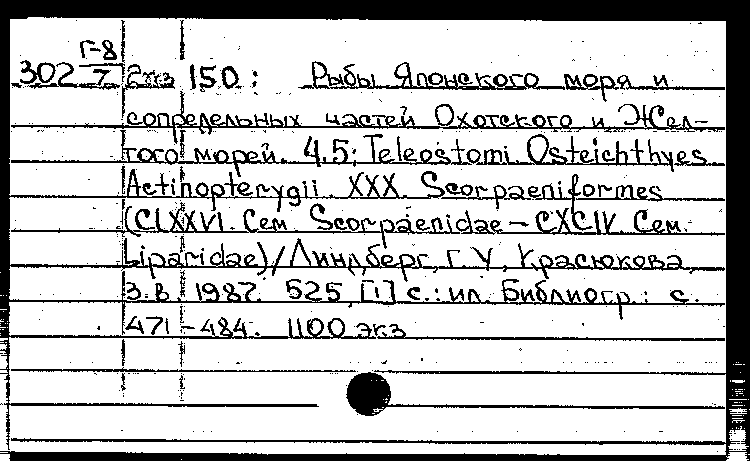 Г-8
302 7 2экз 150: Рыбы Японского моря и
сопредельных частей Охотского и Жел-
того морей. Ч.5: Teleostomi Osteichthyes
Actinopterygii. XXX. Scorpaeniformes
(CLXXVI. Сем. Scorpaenidae - CXCIV. Сем.
Liparidae)/Линдберг, Г. У., Красюкова,
З.В. 1987. 525, [1] с.: ил. Библиогр.: с.
471-484. 1100 экз